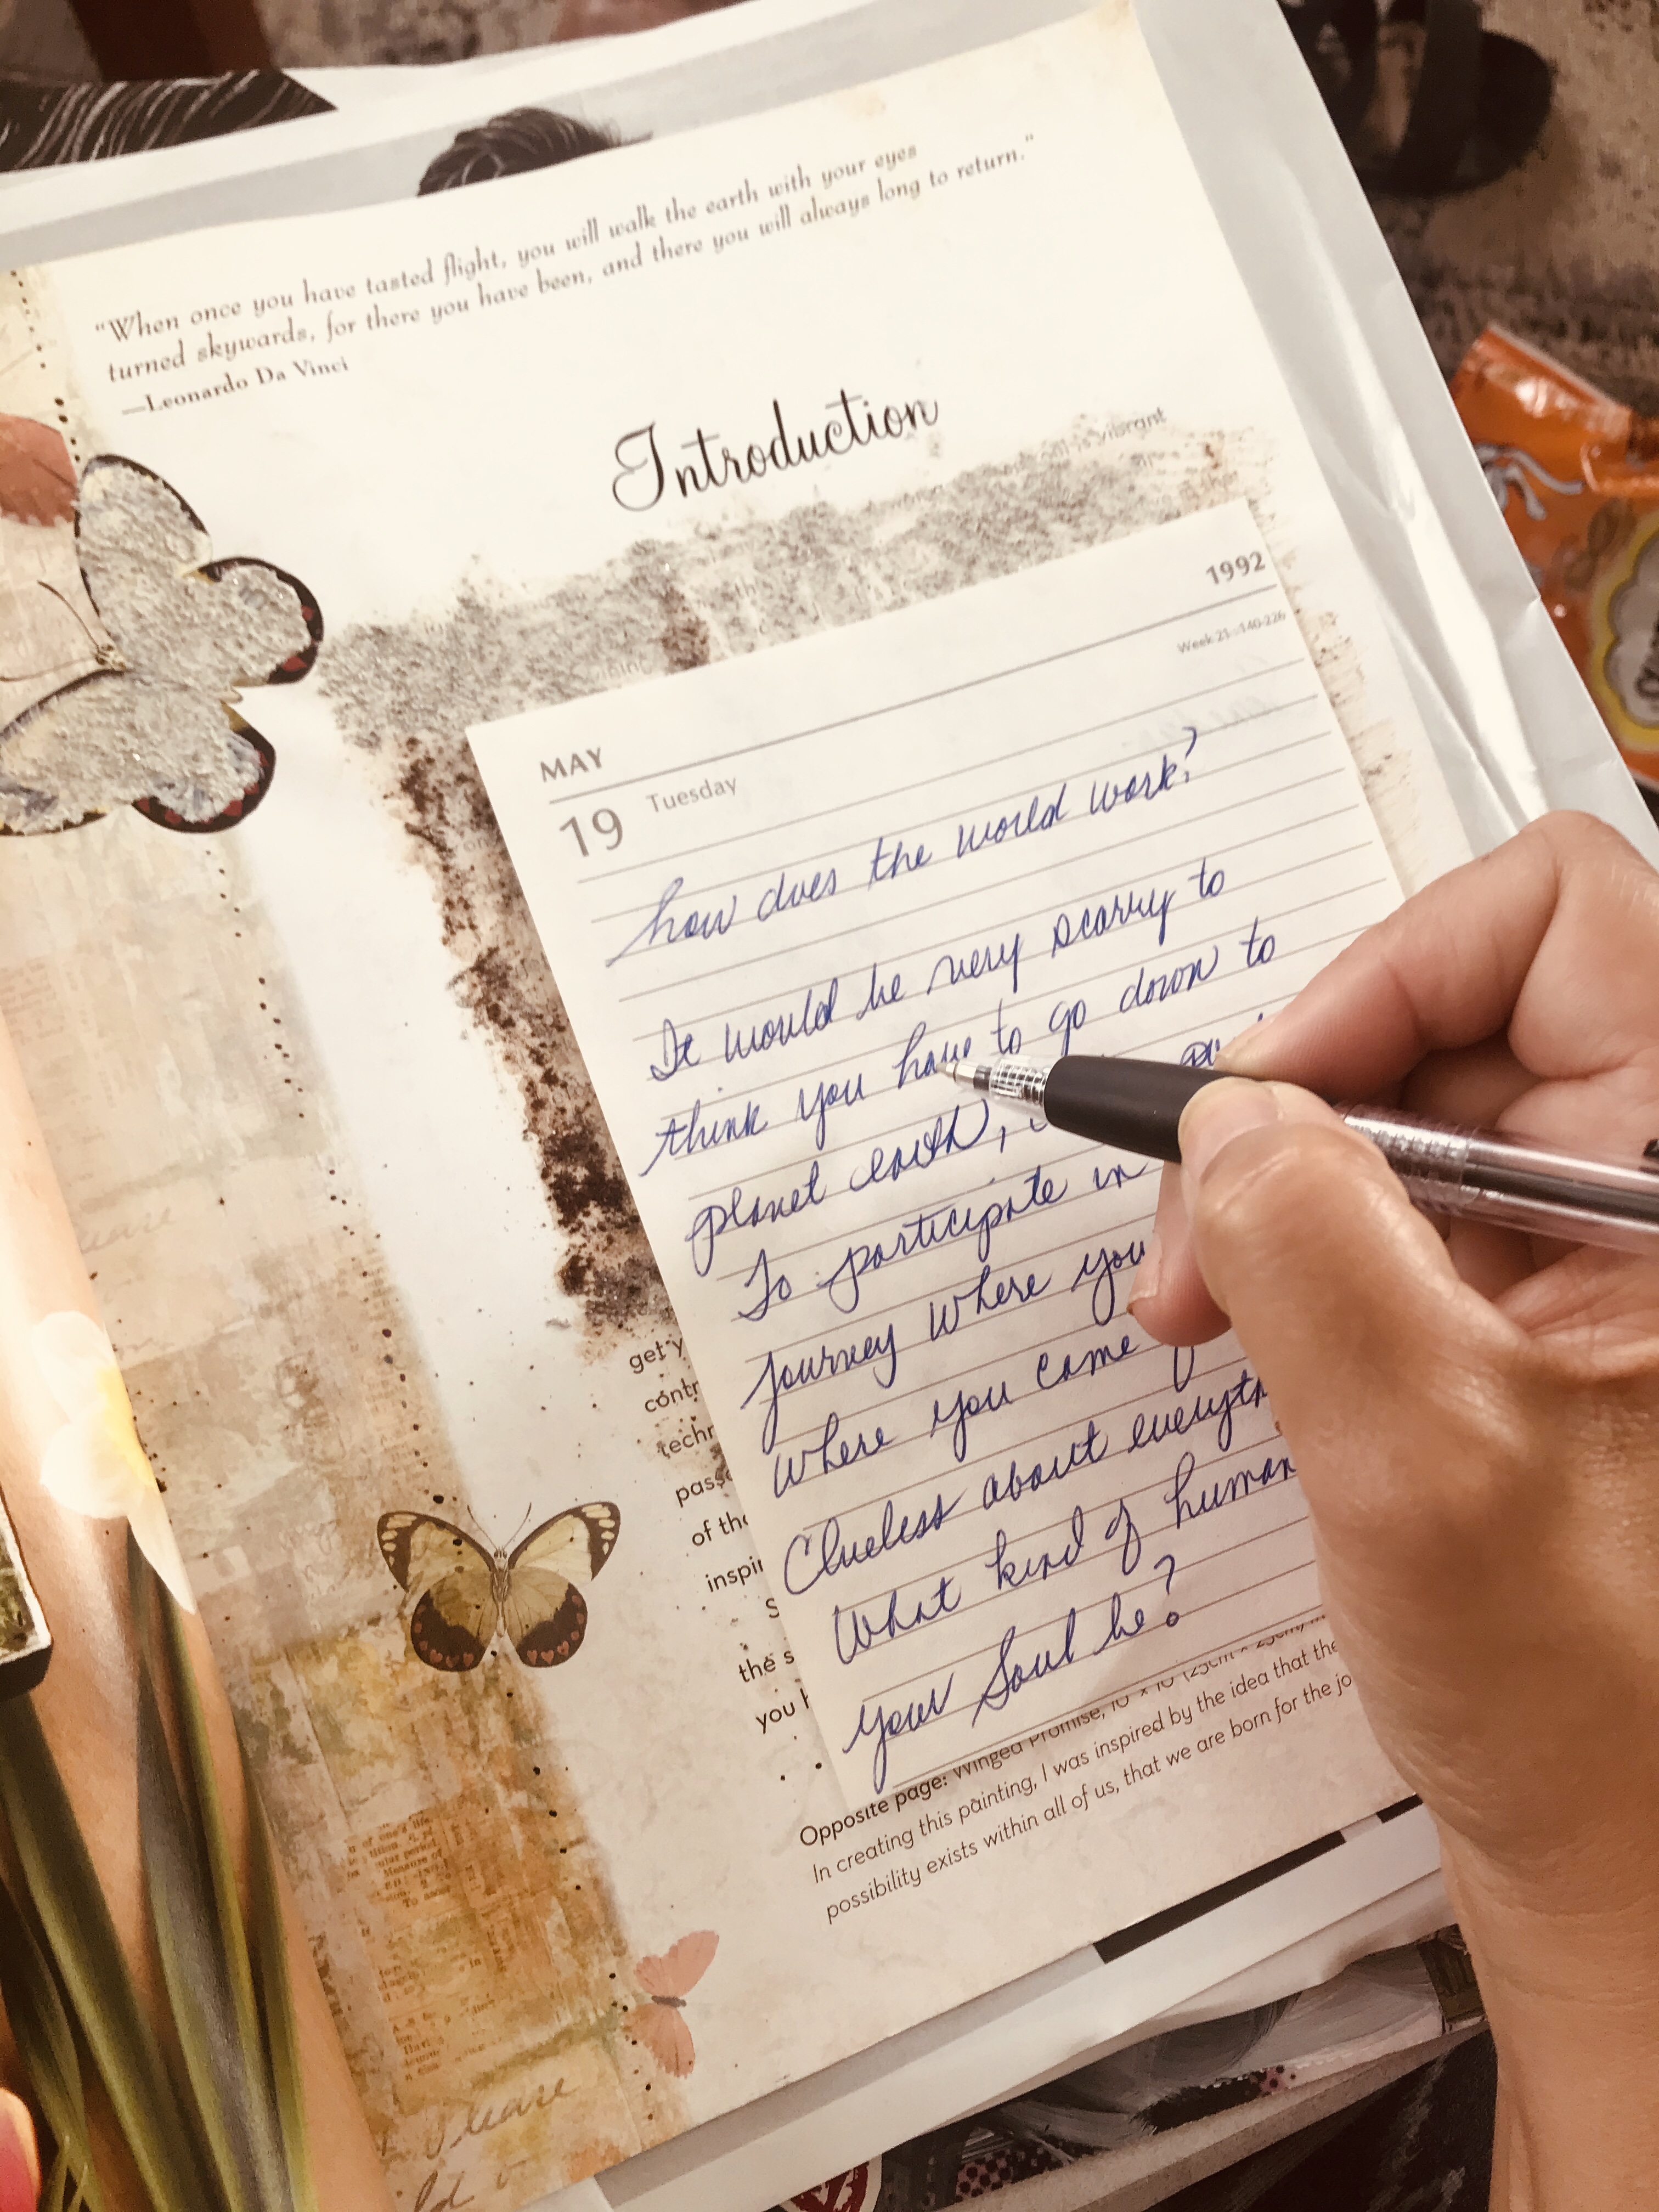 "When once you have tasted flight, you will walk the earth with your eyes
turned skywards, for there you have been, and there you will always long to return."
—Leonardo Da Vinci
Introduction
vibrant
1992
Week 21 · 140-226
MAY
19 Tuesday
how does the world work?
It would be very scarry to
think you have to go down to
planet earth,
To participate in
journey where you
where you come
Clueless about everyth
What kind of human
your Soul be?
get y
contr
techn
passo
of the
inspi
S
the s
you h
Opposite page: Winged Promise, 10" x 10" (25cm x 25cm)
In creating this painting, I was inspired by the idea that the
possibility exists within all of us, that we are born for the jo
Please